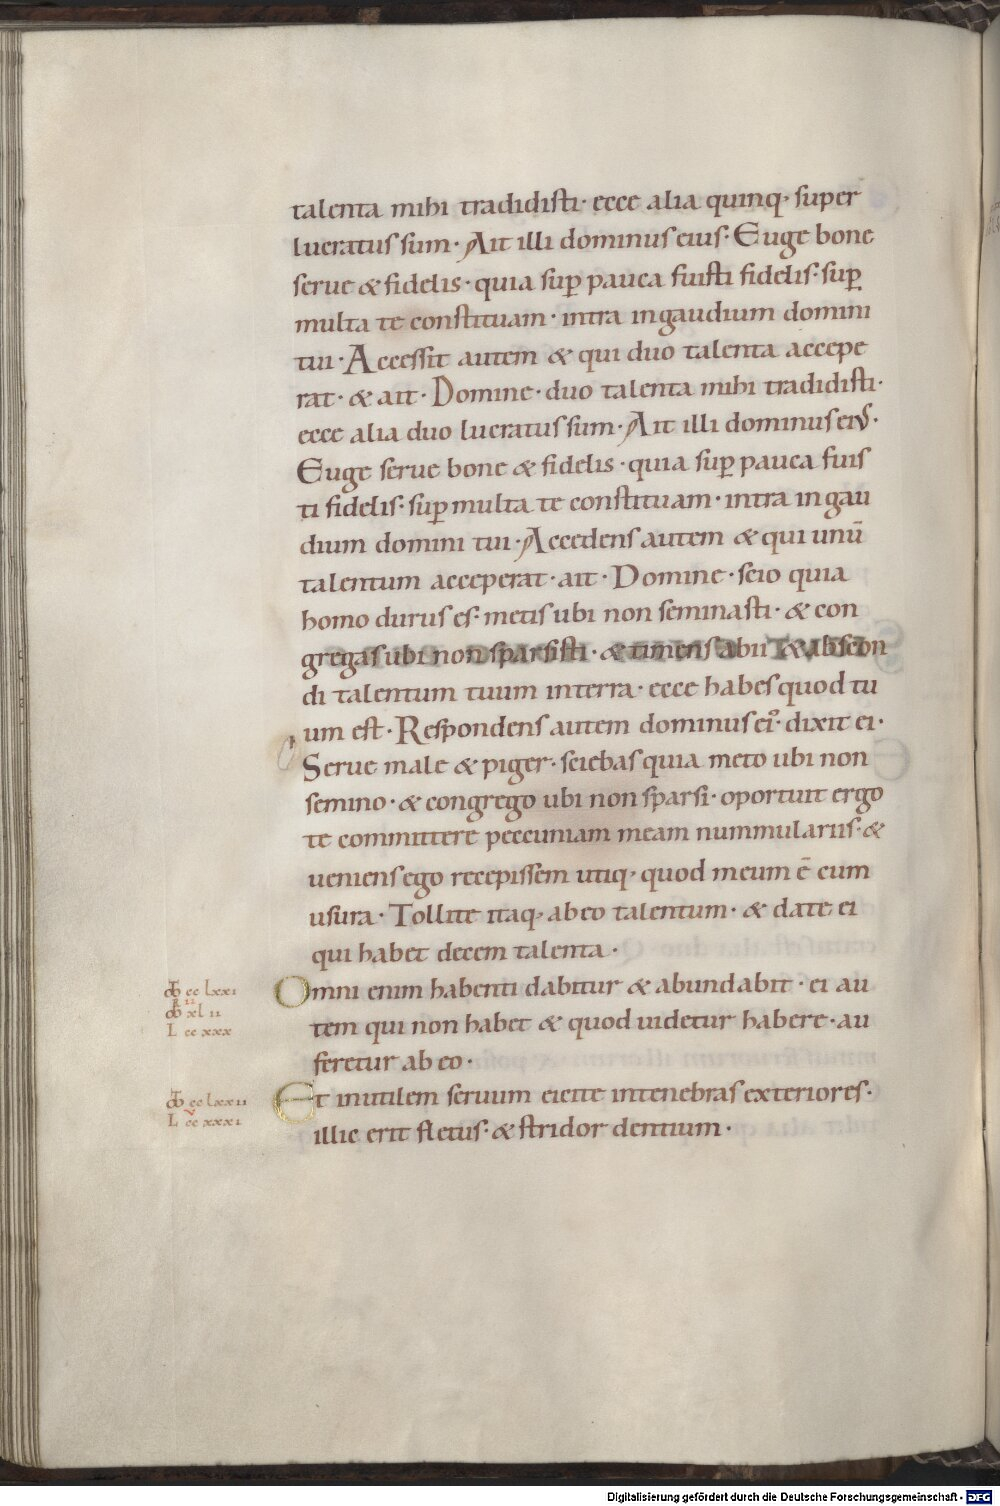 talenta mihi tradidisti· ecce alia quinq; super
lucratus sum· Ait illi dominus eius· Euge bone
serue & fidelis· quia sup̱ pauca fuisti fidelis· sup̱
multa te constituam· intra in gaudium domini
tui· Accessit autem & qui duo talenta accepe
rat· & ait· Domine· duo talenta mihi tradidisti·
ecce alia duo lucratus sum· Ait illi dominus eiꝰ·
Euge serue bone & fidelis· quia sup̱ pauca fuis
ti fidelis· sup̱ multa te constituam· intra in gau
dium domini tui· Accedens autem & qui unū
talentum acceperat· ait· Domine· scio quia
homo durus es· metis ubi non seminasti· & con
gregas ubi non sparsisti· & timens abii & abscon
di talentum tuum in terra· ecce habes quod tu
um est· Respondens autem dominus eiꝰ· dixit ei·
Serue male & piger· sciebas quia meto ubi non
semino· & congrego ubi non sparsi· oportuit ergo
te committere peccuniam meam nummulariis· &
ueniens ego recepissem utiq; quod meum ē cum
usura· Tollite itaq; ab eo talentum· & date ei
qui habet decem talenta·
cc lxxi
Omni enim habenti dabitur & abundabit· ei au
xl ii
tem qui non habet & quod uidetur habere· au
L cc xxx
feretur ab eo·
cc lxxii
Et inutilem seruum eicite in tenebras exteriores·
L cc xxxi
illic erit fletus· & stridor dentium·
Digitalisierung gefördert durch die Deutsche Forschungsgemeinschaft - DFG